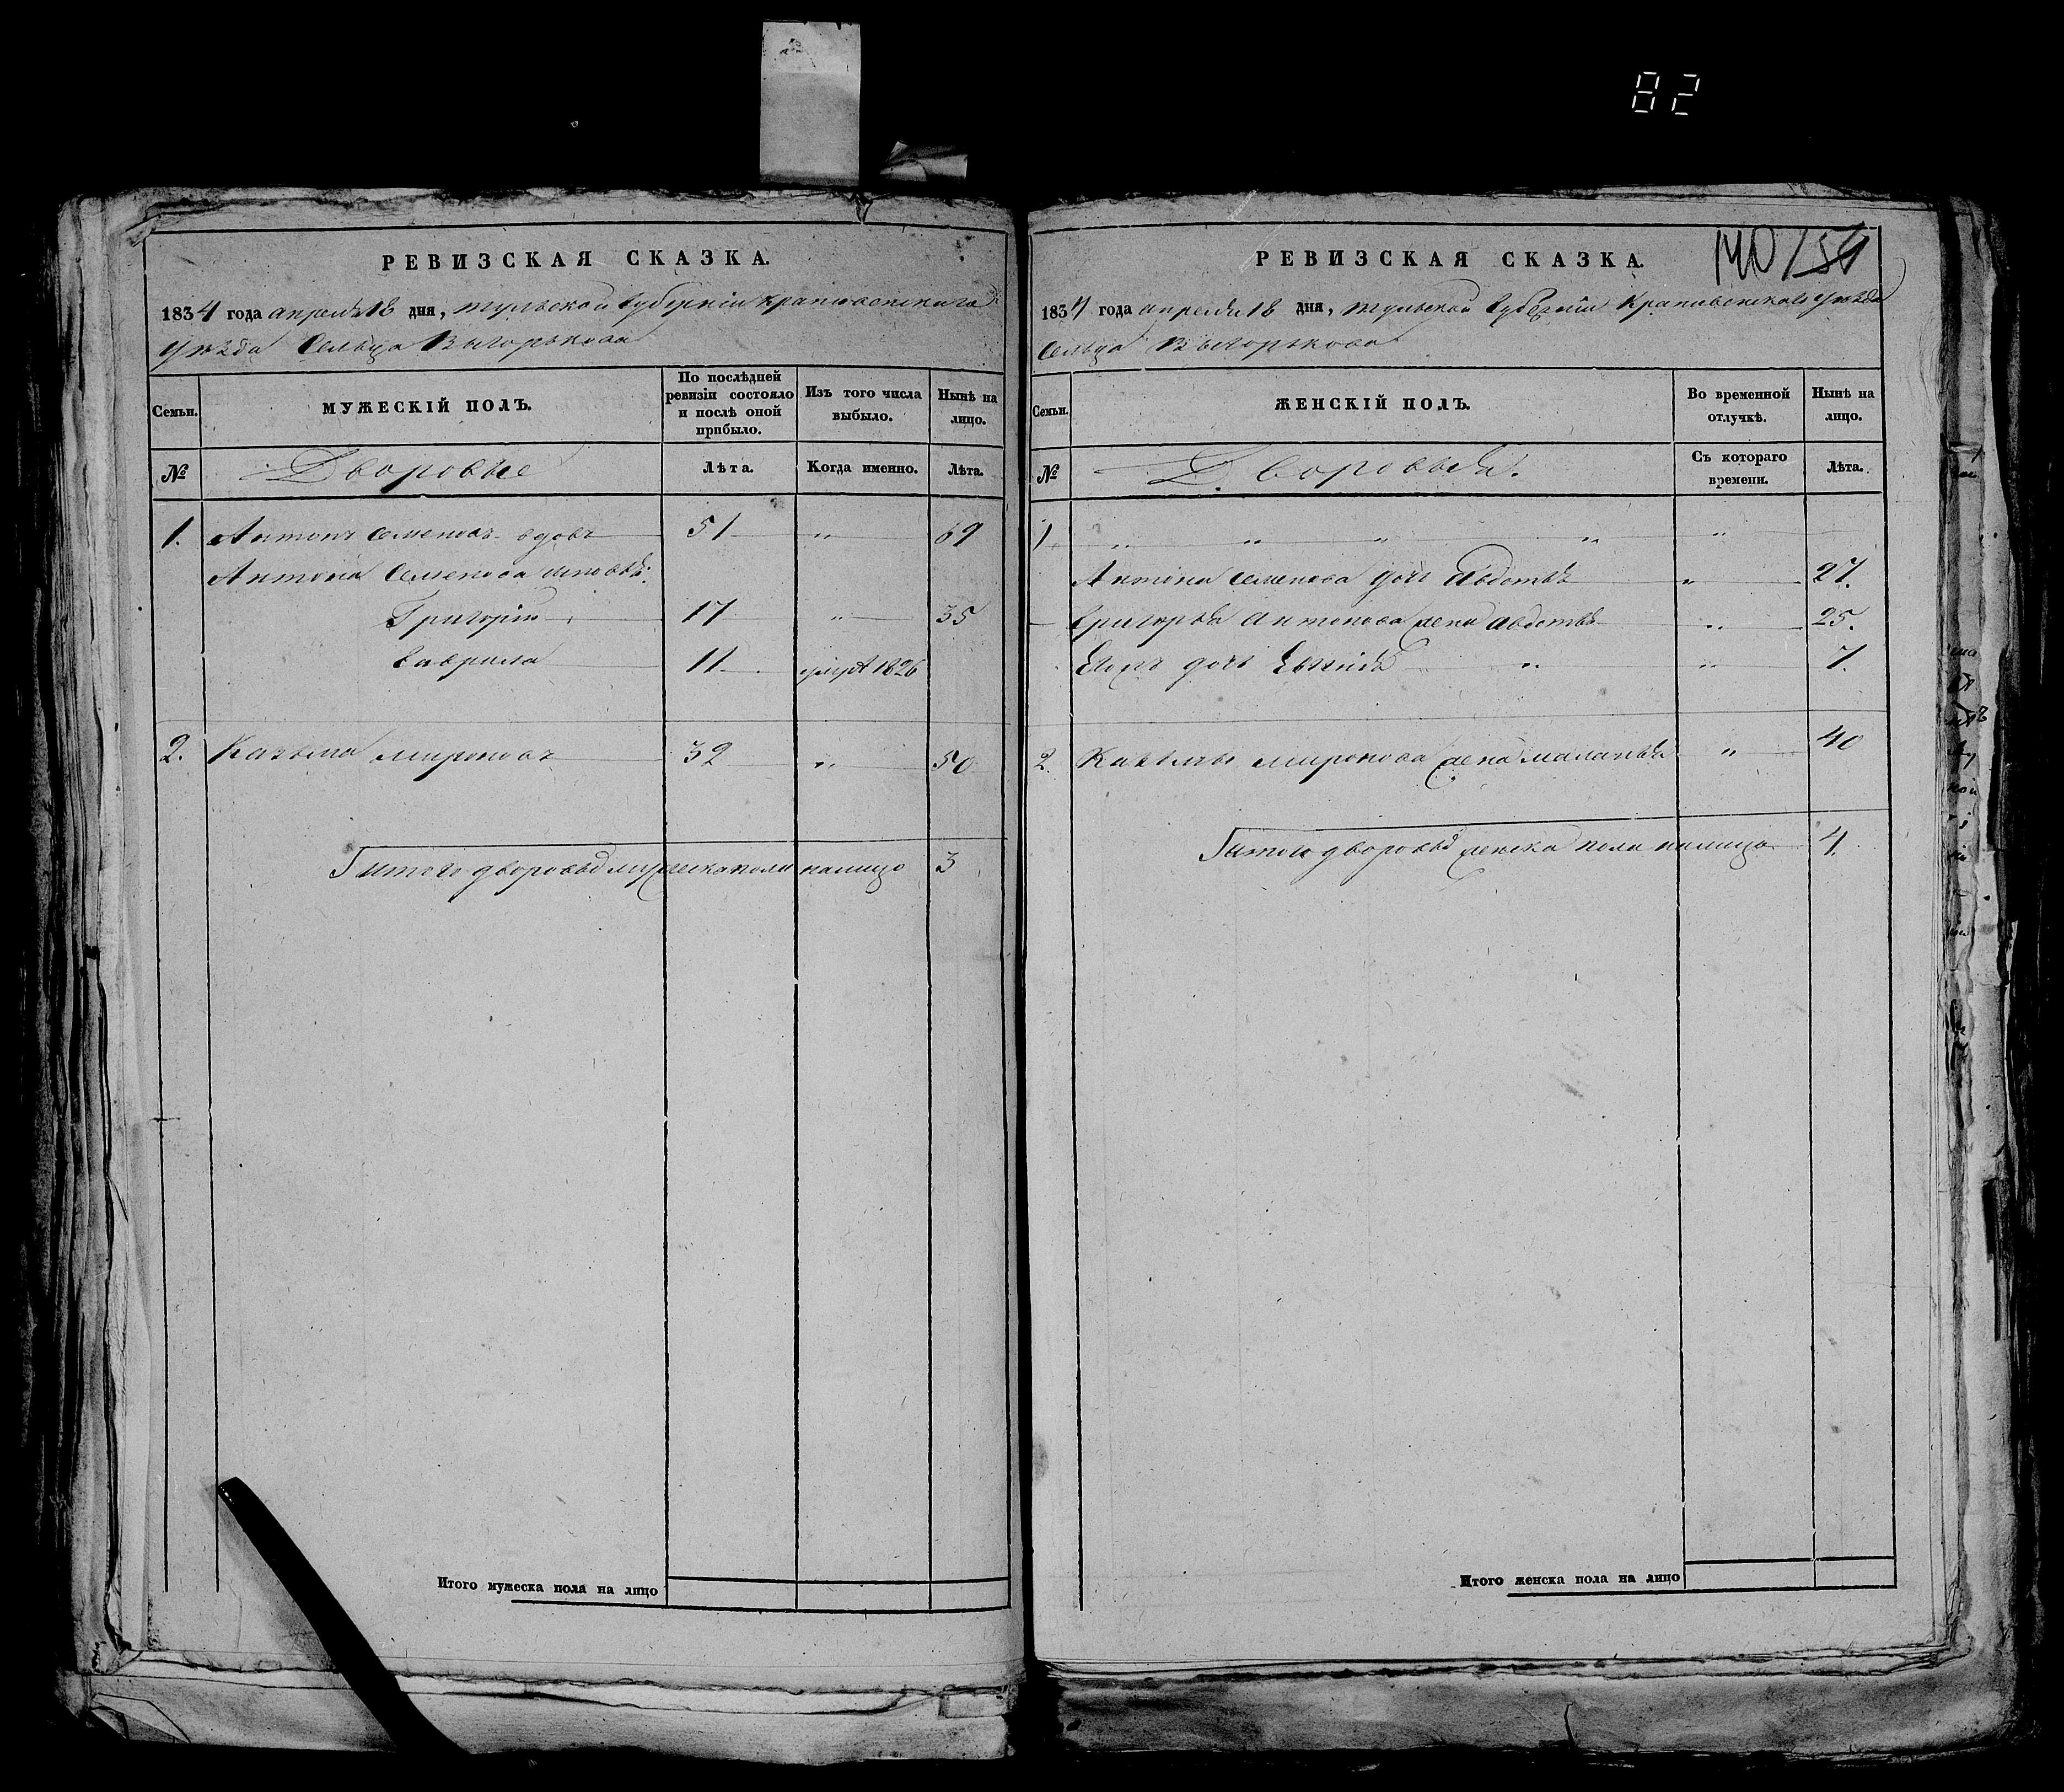 82
РЕВИЗСКАЯ СКАЗКА.
1834 года апреля 18 дня, Тульской Губернiи Крапивенского
Уѣзда Сельца Выгорькова
Семьи.
МУЖЕСКІЙ ПОЛЪ.
По послѣдней ревизіи состояло и послѣ оной прибыло.
Изъ того числа выбыло.
Нынѣ на лицо.
№
Дворовые
Лѣта.
Когда именно.
Лѣта.
1. Антонъ Семеновъ вдовъ 51 " 69
Антона Семенова
Григорiй 17 " 35
Гаврила 11 1826
2. Казьма Мироновъ 32 " 50
Итого дворовых мужеска пола налицо 3
Итого мужеска пола на лицо
140/
РЕВИЗСКАЯ СКАЗКА.
1834 года апреля 18 дня, Тульской Губернiи Крапивенского Уѣзда
Сельца Выгорькова
Семьи.
ЖЕНСКІЙ ПОЛЪ.
Во временной отлучкѣ.
Нынѣ на лицо.
№
Дворовыя.
Съ котораго времени.
Лѣта.
1 " " " " "
Антона Семенова дочь Авдотья " 27.
Григорья Антонова жена Авдотья " 25.
дочь " " 7.
2. Казьмы Миронова жена Маланья " 40
Итого дворовых женска пола налицо 4.
Итого женска пола на лицо